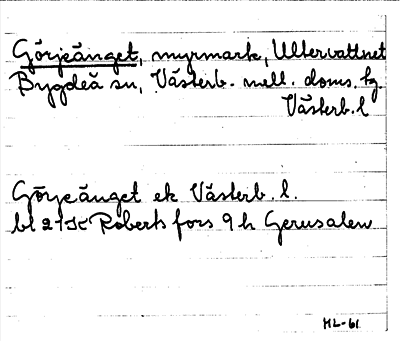 Görjeänget, myrmark, Ultervattnet
Bygdeå sn, Västerb. mell. doms. tg.
Västerb. l
Görjeänget ek Västerb. l.
bl 21 Roberts fors 9 h Gerusalem
ML-61